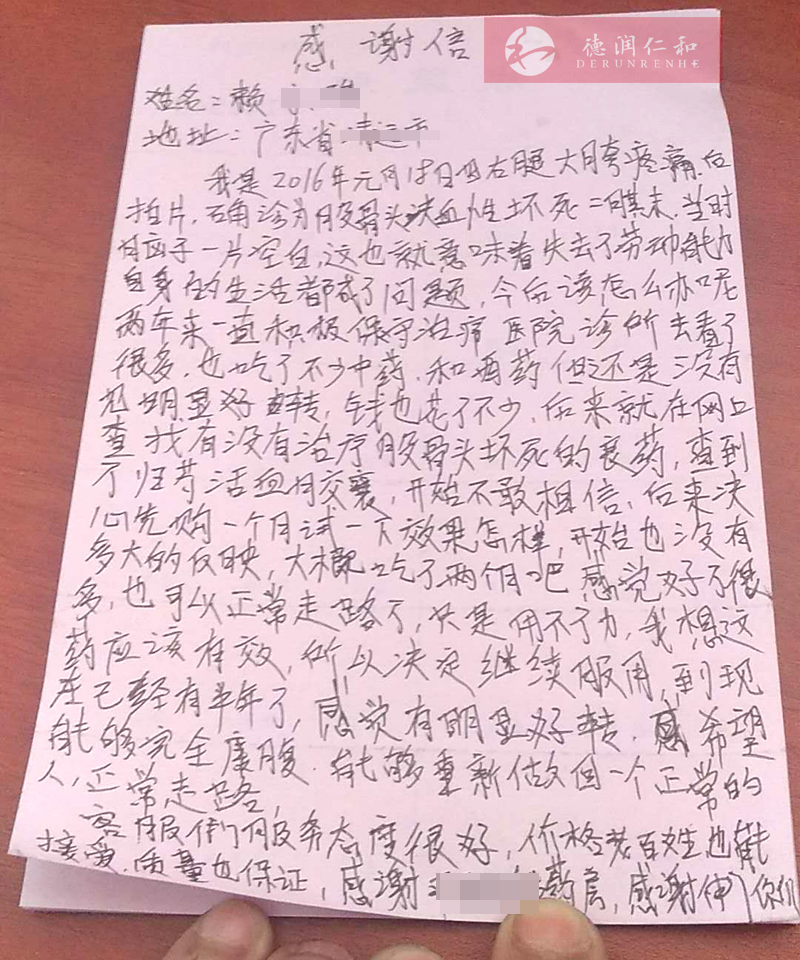 感谢信
德润仁和
DERUNRENHE
姓名:赖
地址:广东省清远市
我是2016年元月18日因右腿大月夸疼痛后
拍片,确诊为股骨头缺血性坏死二期末,当时
脑子一片空白,这也就意味着失去了劳动能力
自身的生活都成了问题,今后该怎么办呢
两年来一直积极保守治疗 医院诊所去看了
很多,也吃了不少中药,和西药但还是没有
见明显好转,钱也花了不少,后来就在网上
查找有没有治疗股骨头坏死的药,查到
了归芍活血胶囊,开始不敢相信,后来决
心先购一个月试一下效果怎样,开始也没有
多大的反映,大概吃了两个月吧 感觉好了很
多,也可以正常走路了,只是用不了力,我想这
药应该有效,所以决定继续服用,到现
在已经有半年了,感觉有明显好转.希望
能够完全康腹.能够重新做回一个正常的
人,正常走路,
客服们服务态度很好,价格老百姓也能
接受.质量也保证,感谢药房,感谢你们